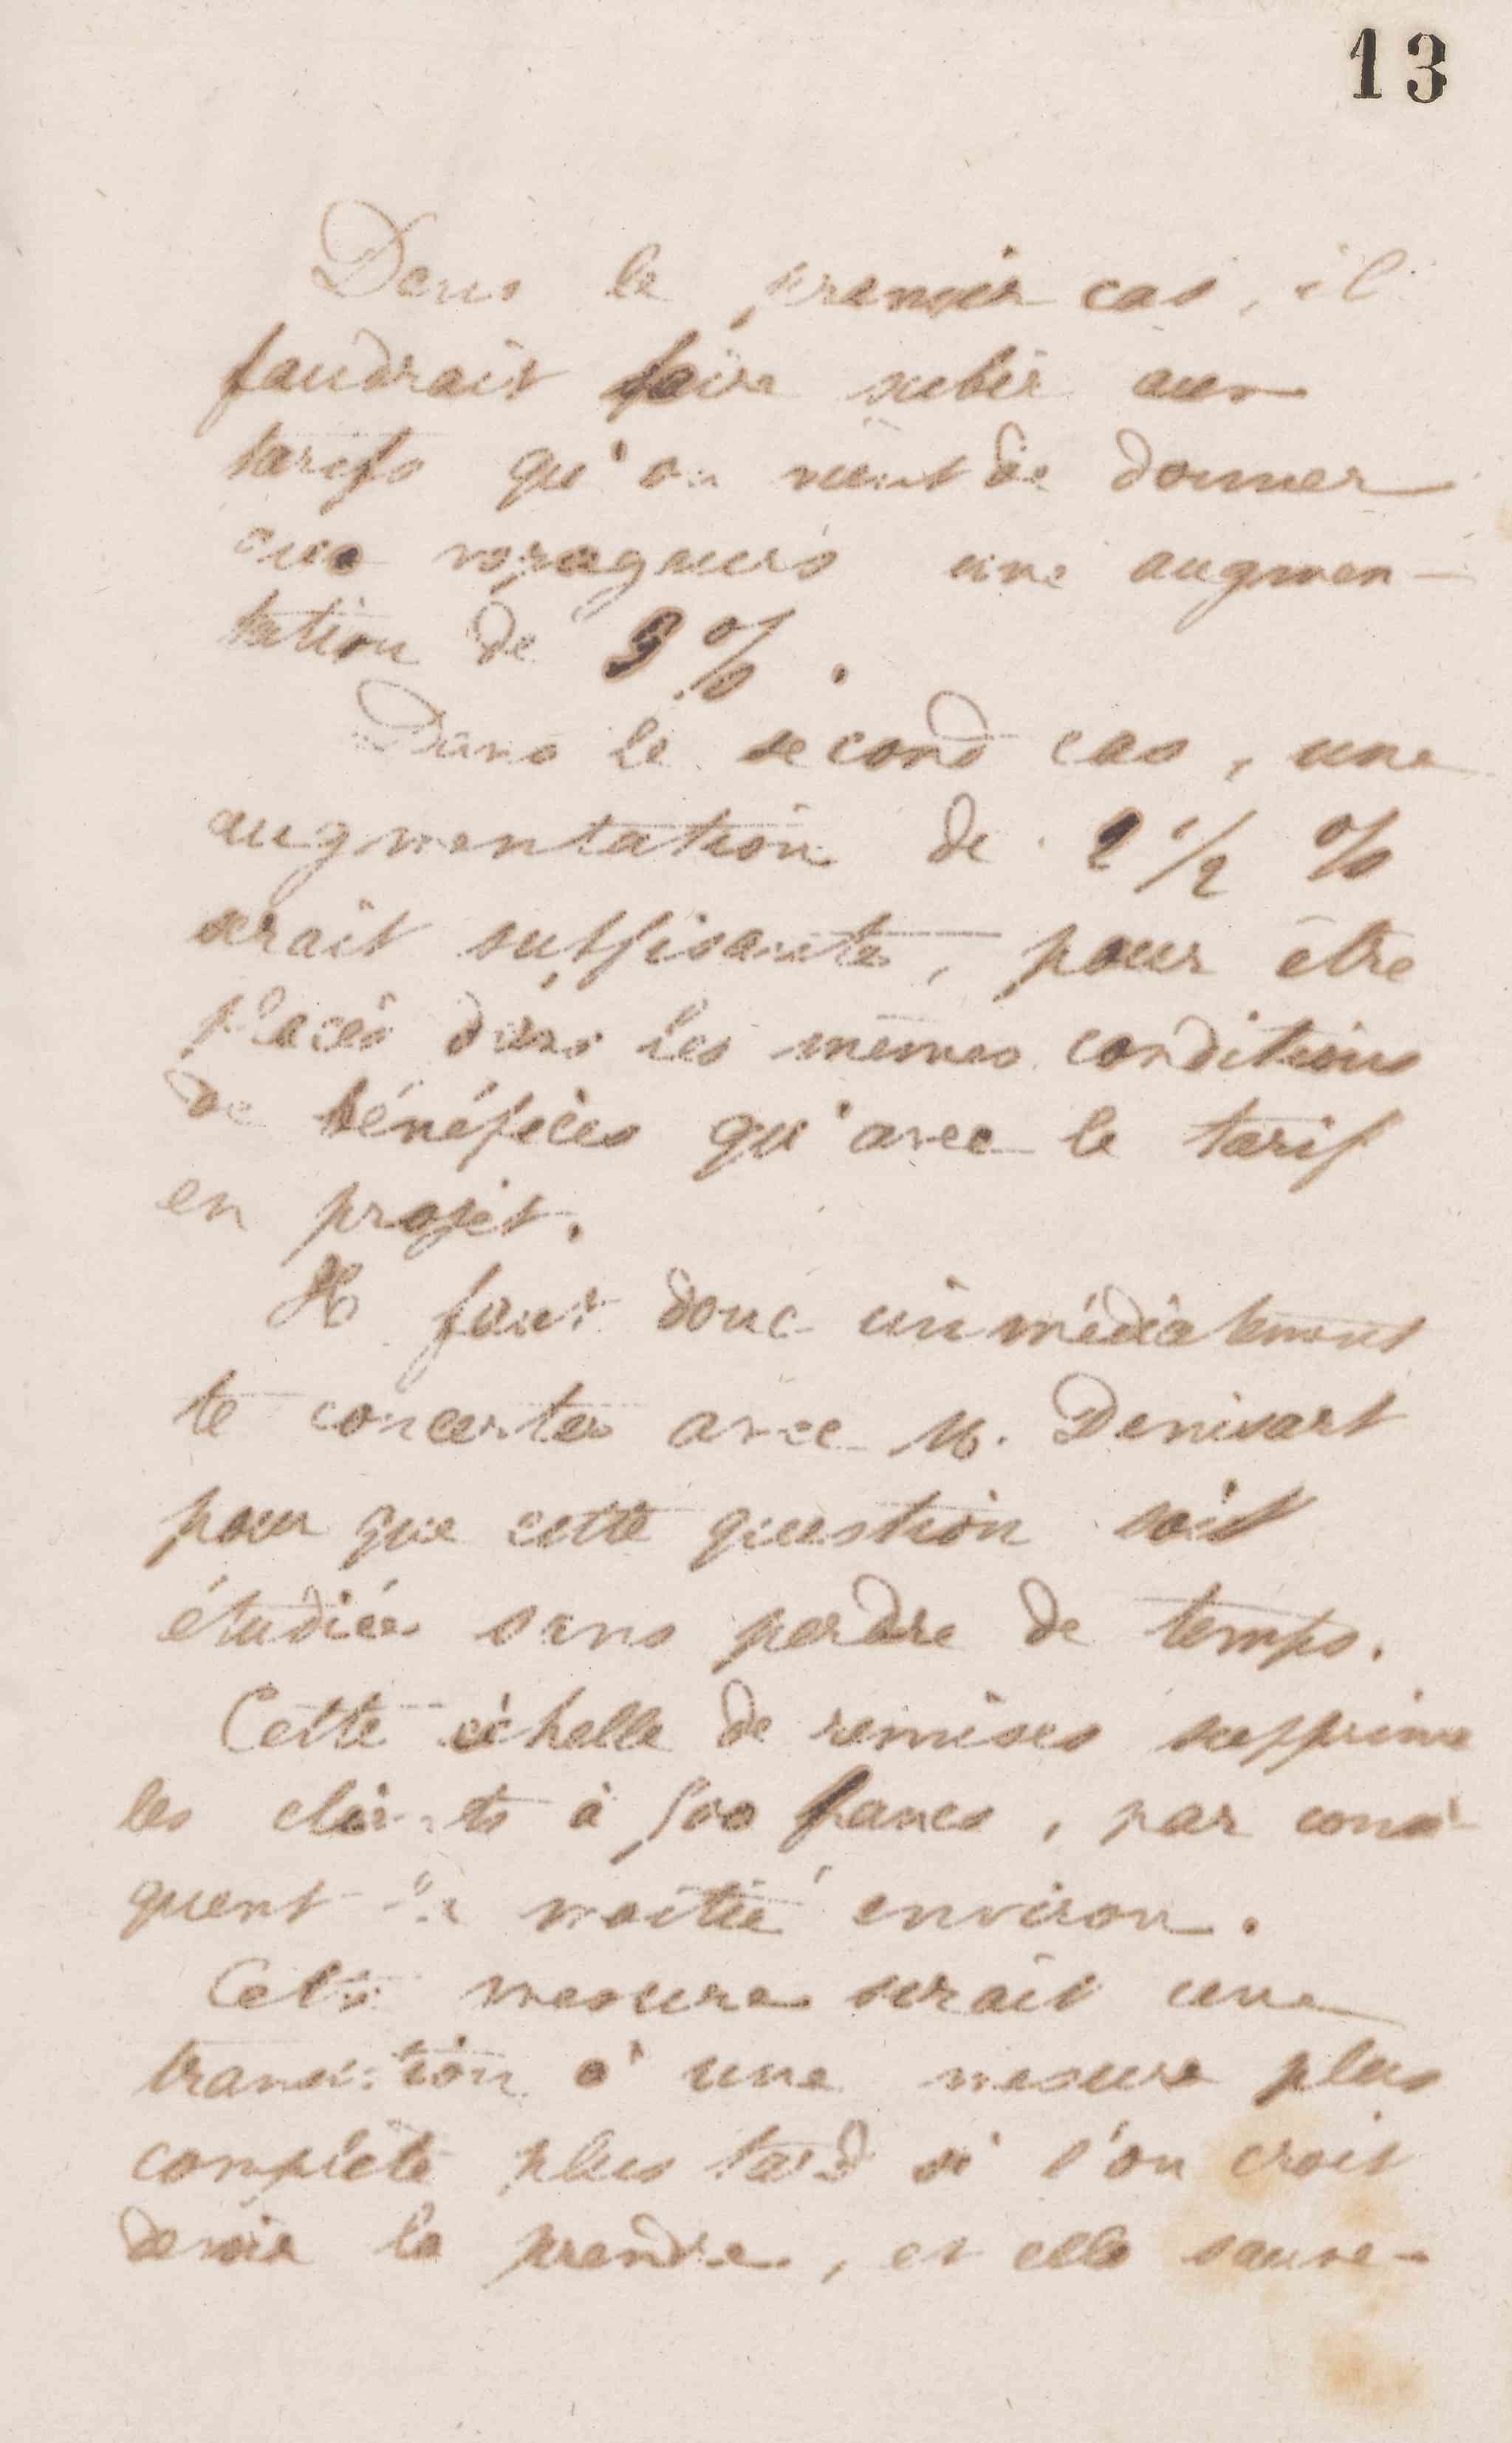 13
Dans le premier cas, il
faudrait faire subir aux
tarifs qu'on vient de donner
aux voyageurs une augmen-
tation de 3 %.
Dans le second cas, une
augmentation de 2 1/2 %
serait suffisante, pour être
placés dans les mêmes conditions
de bénéfices qu'avec le tarif
en projet.
Il faut donc immédiatement
te concerter avec M. Denisart
pour que cette question soit
étudiée sans perdre de temps.
Cette échelle de remises supprime
les clients à 500 francs, par consé
quent la moitié environ.
Cette mesure serait une
transition à une mesure plus
complète plus tard si l'on croit
devoir la prendre, et elle sauve-